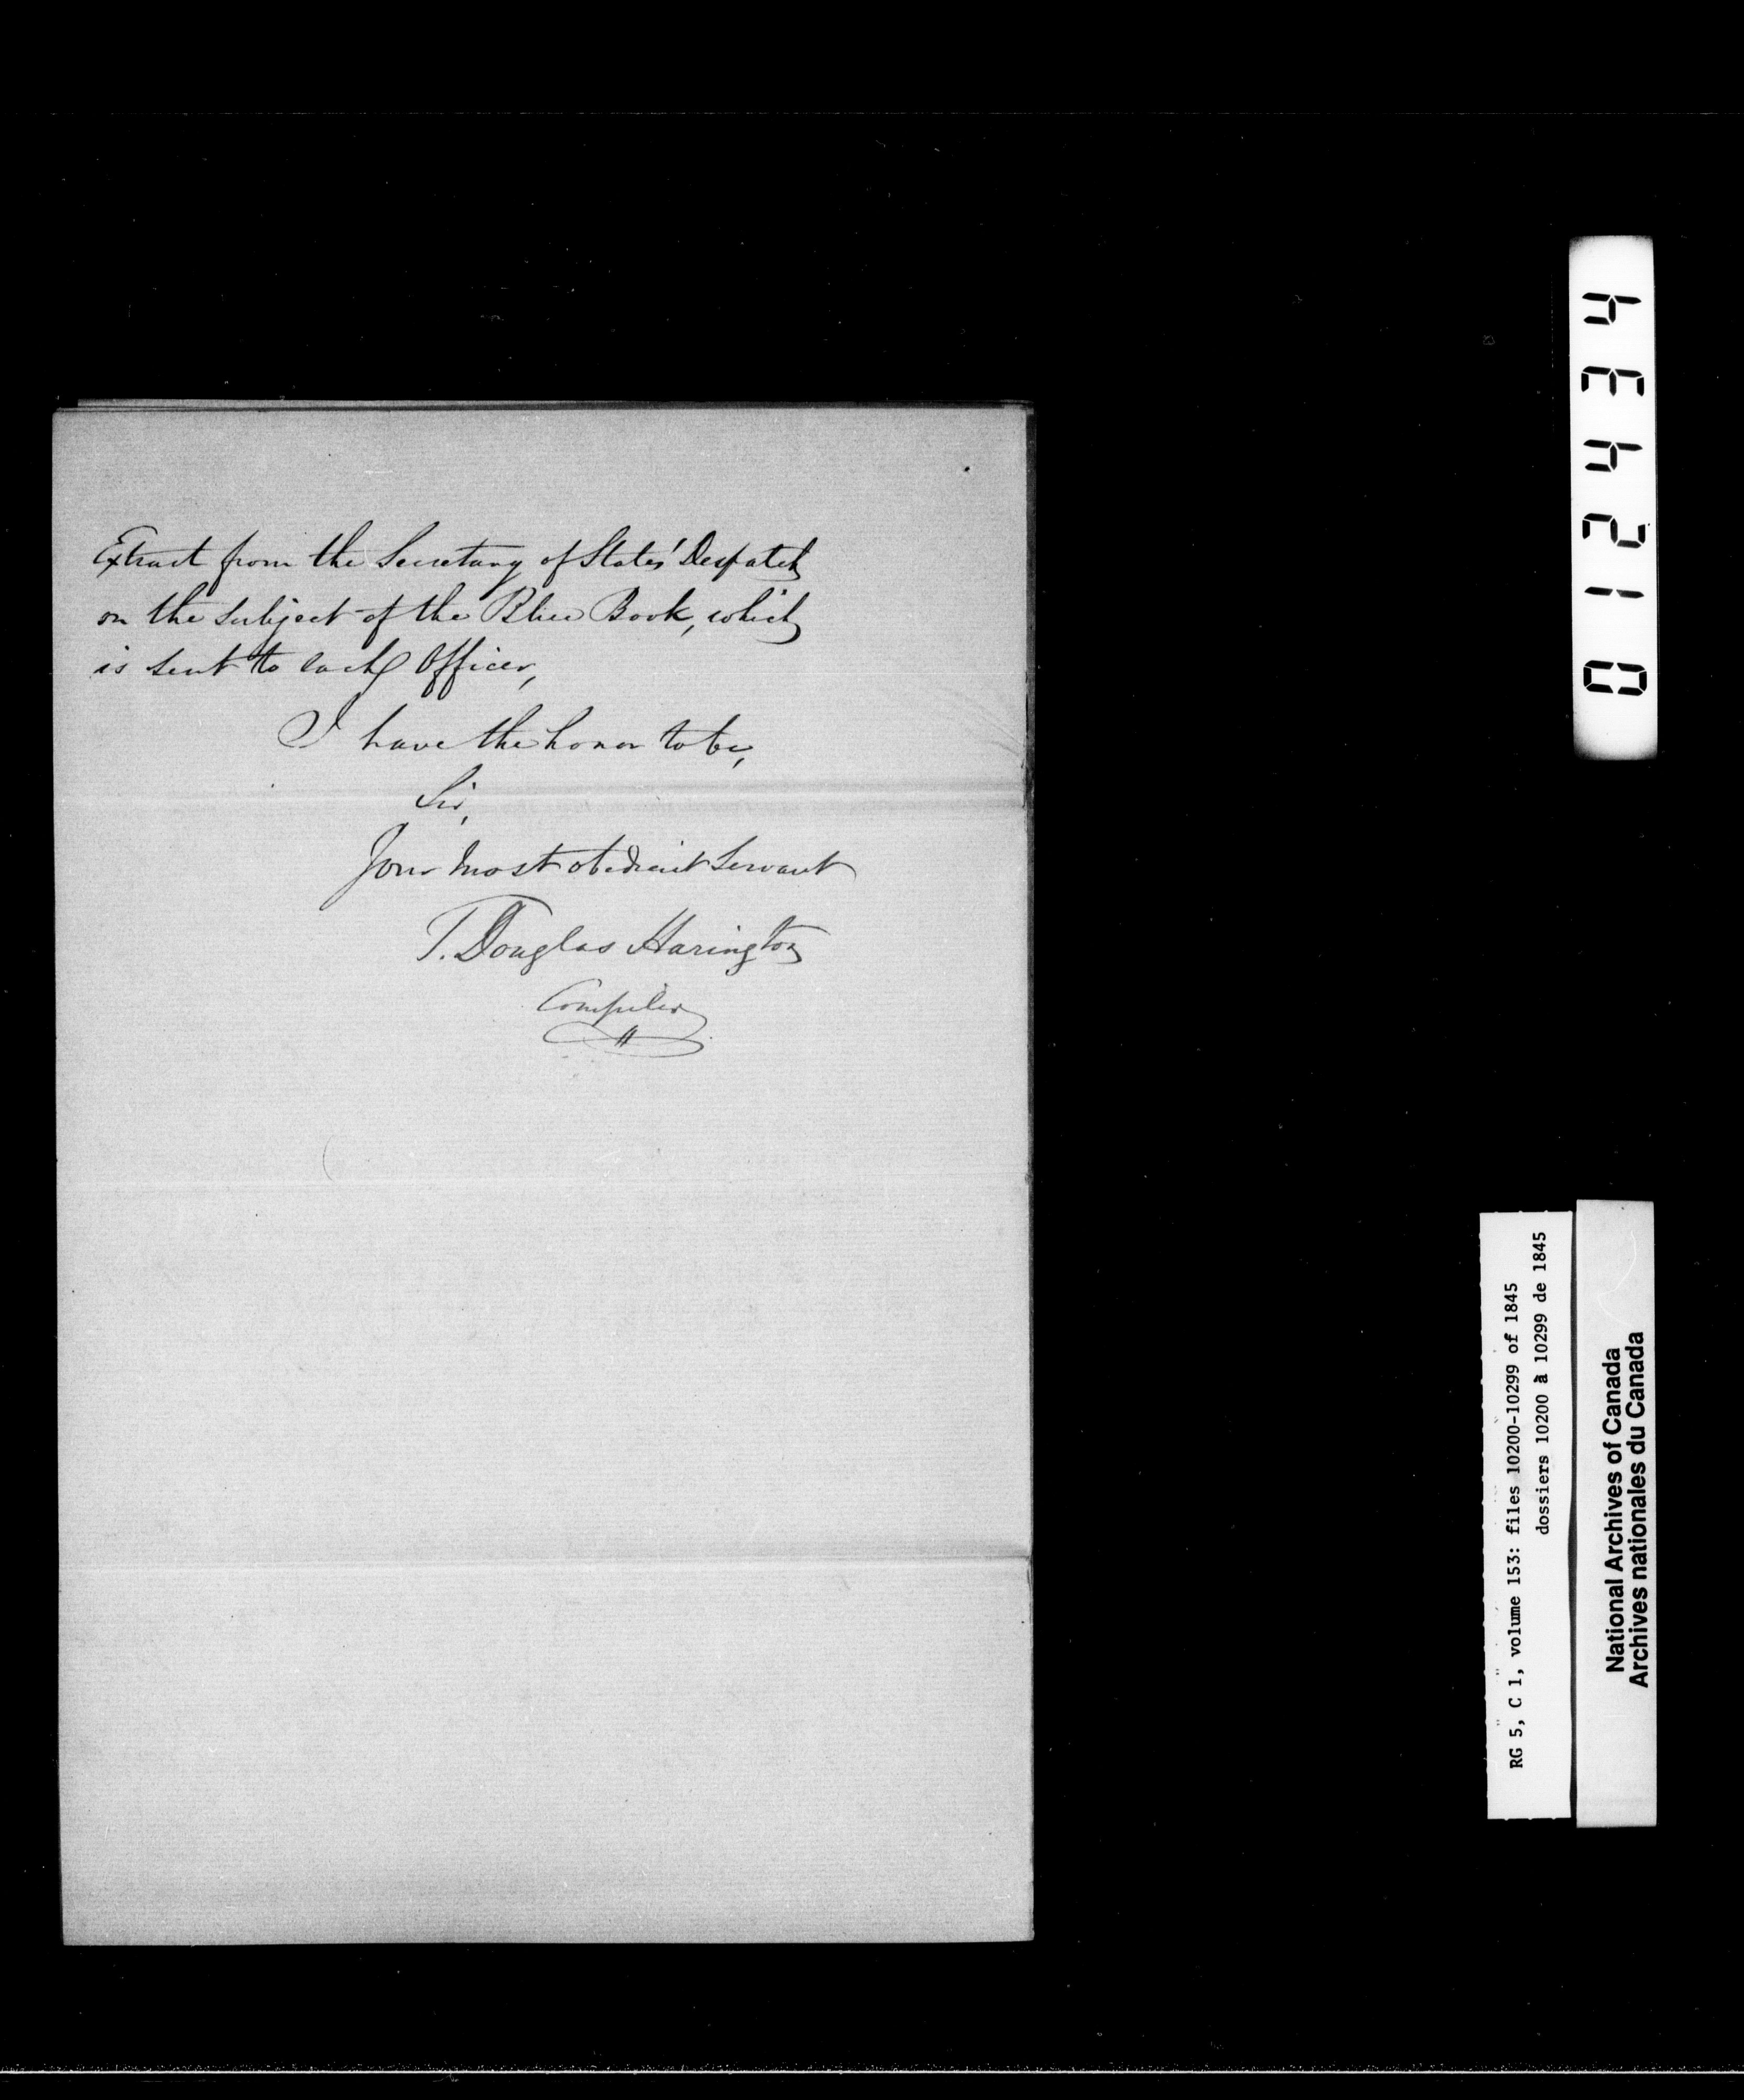 Extract from the Secretary of States' Despatch
on the subject of the Blue Book, which
is sent to each Officer,
I have the honor to be,
Sir,
Your most obedient Servant
T. Douglas Harington
Compiler
012434
RG 5, C 1, volume 153: files 10200-10299 of 1845
dossiers 10200 à 10299 de 1845
National Archives of Canada
Archives nationales du Canada